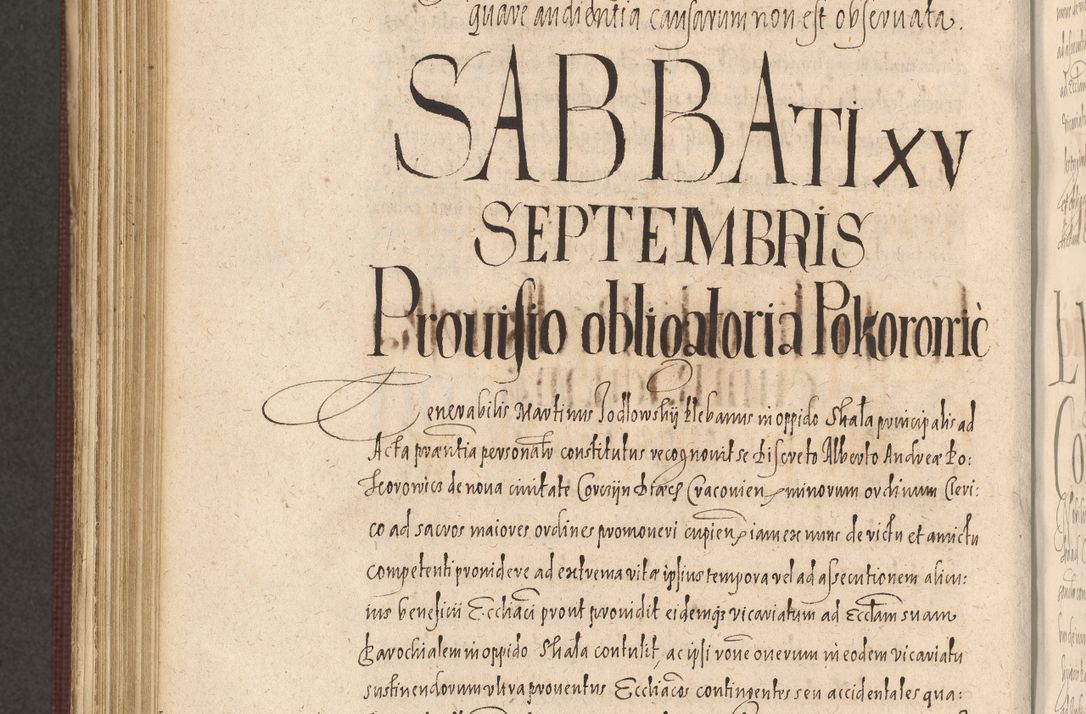 quare audientia causarum non est observata.
SABBATI XV
SEPTEMBRIS
Prouisio obligatoria Pokorowic
Venerabilis Martinus Jodlowskij Plebanus in oppido Skala principalis ad
Acta præntia personalr constitutus recognovit se Discreto Alberto Andreæ Po:
korowics de nova civitate Corczijn Diæcs Cracovien, minorum ordinum Cleri:
co ad sacros maiores ordines promoveri cupien, iam ex nunc de victu et amictu
competenti providere ad extrema vitæ ipsius tempora vel ad assecutionem alicu:
ius beneficii Ecclíaci prout providit eidemq3 vicariatum ad Ecctam suam
Parochialem in oppido Skala contulit, ac ipsi rone onerum in eodem vicariatu
sustinendorum ultra proventus Eccliacos contingentes seu accidentales qua: